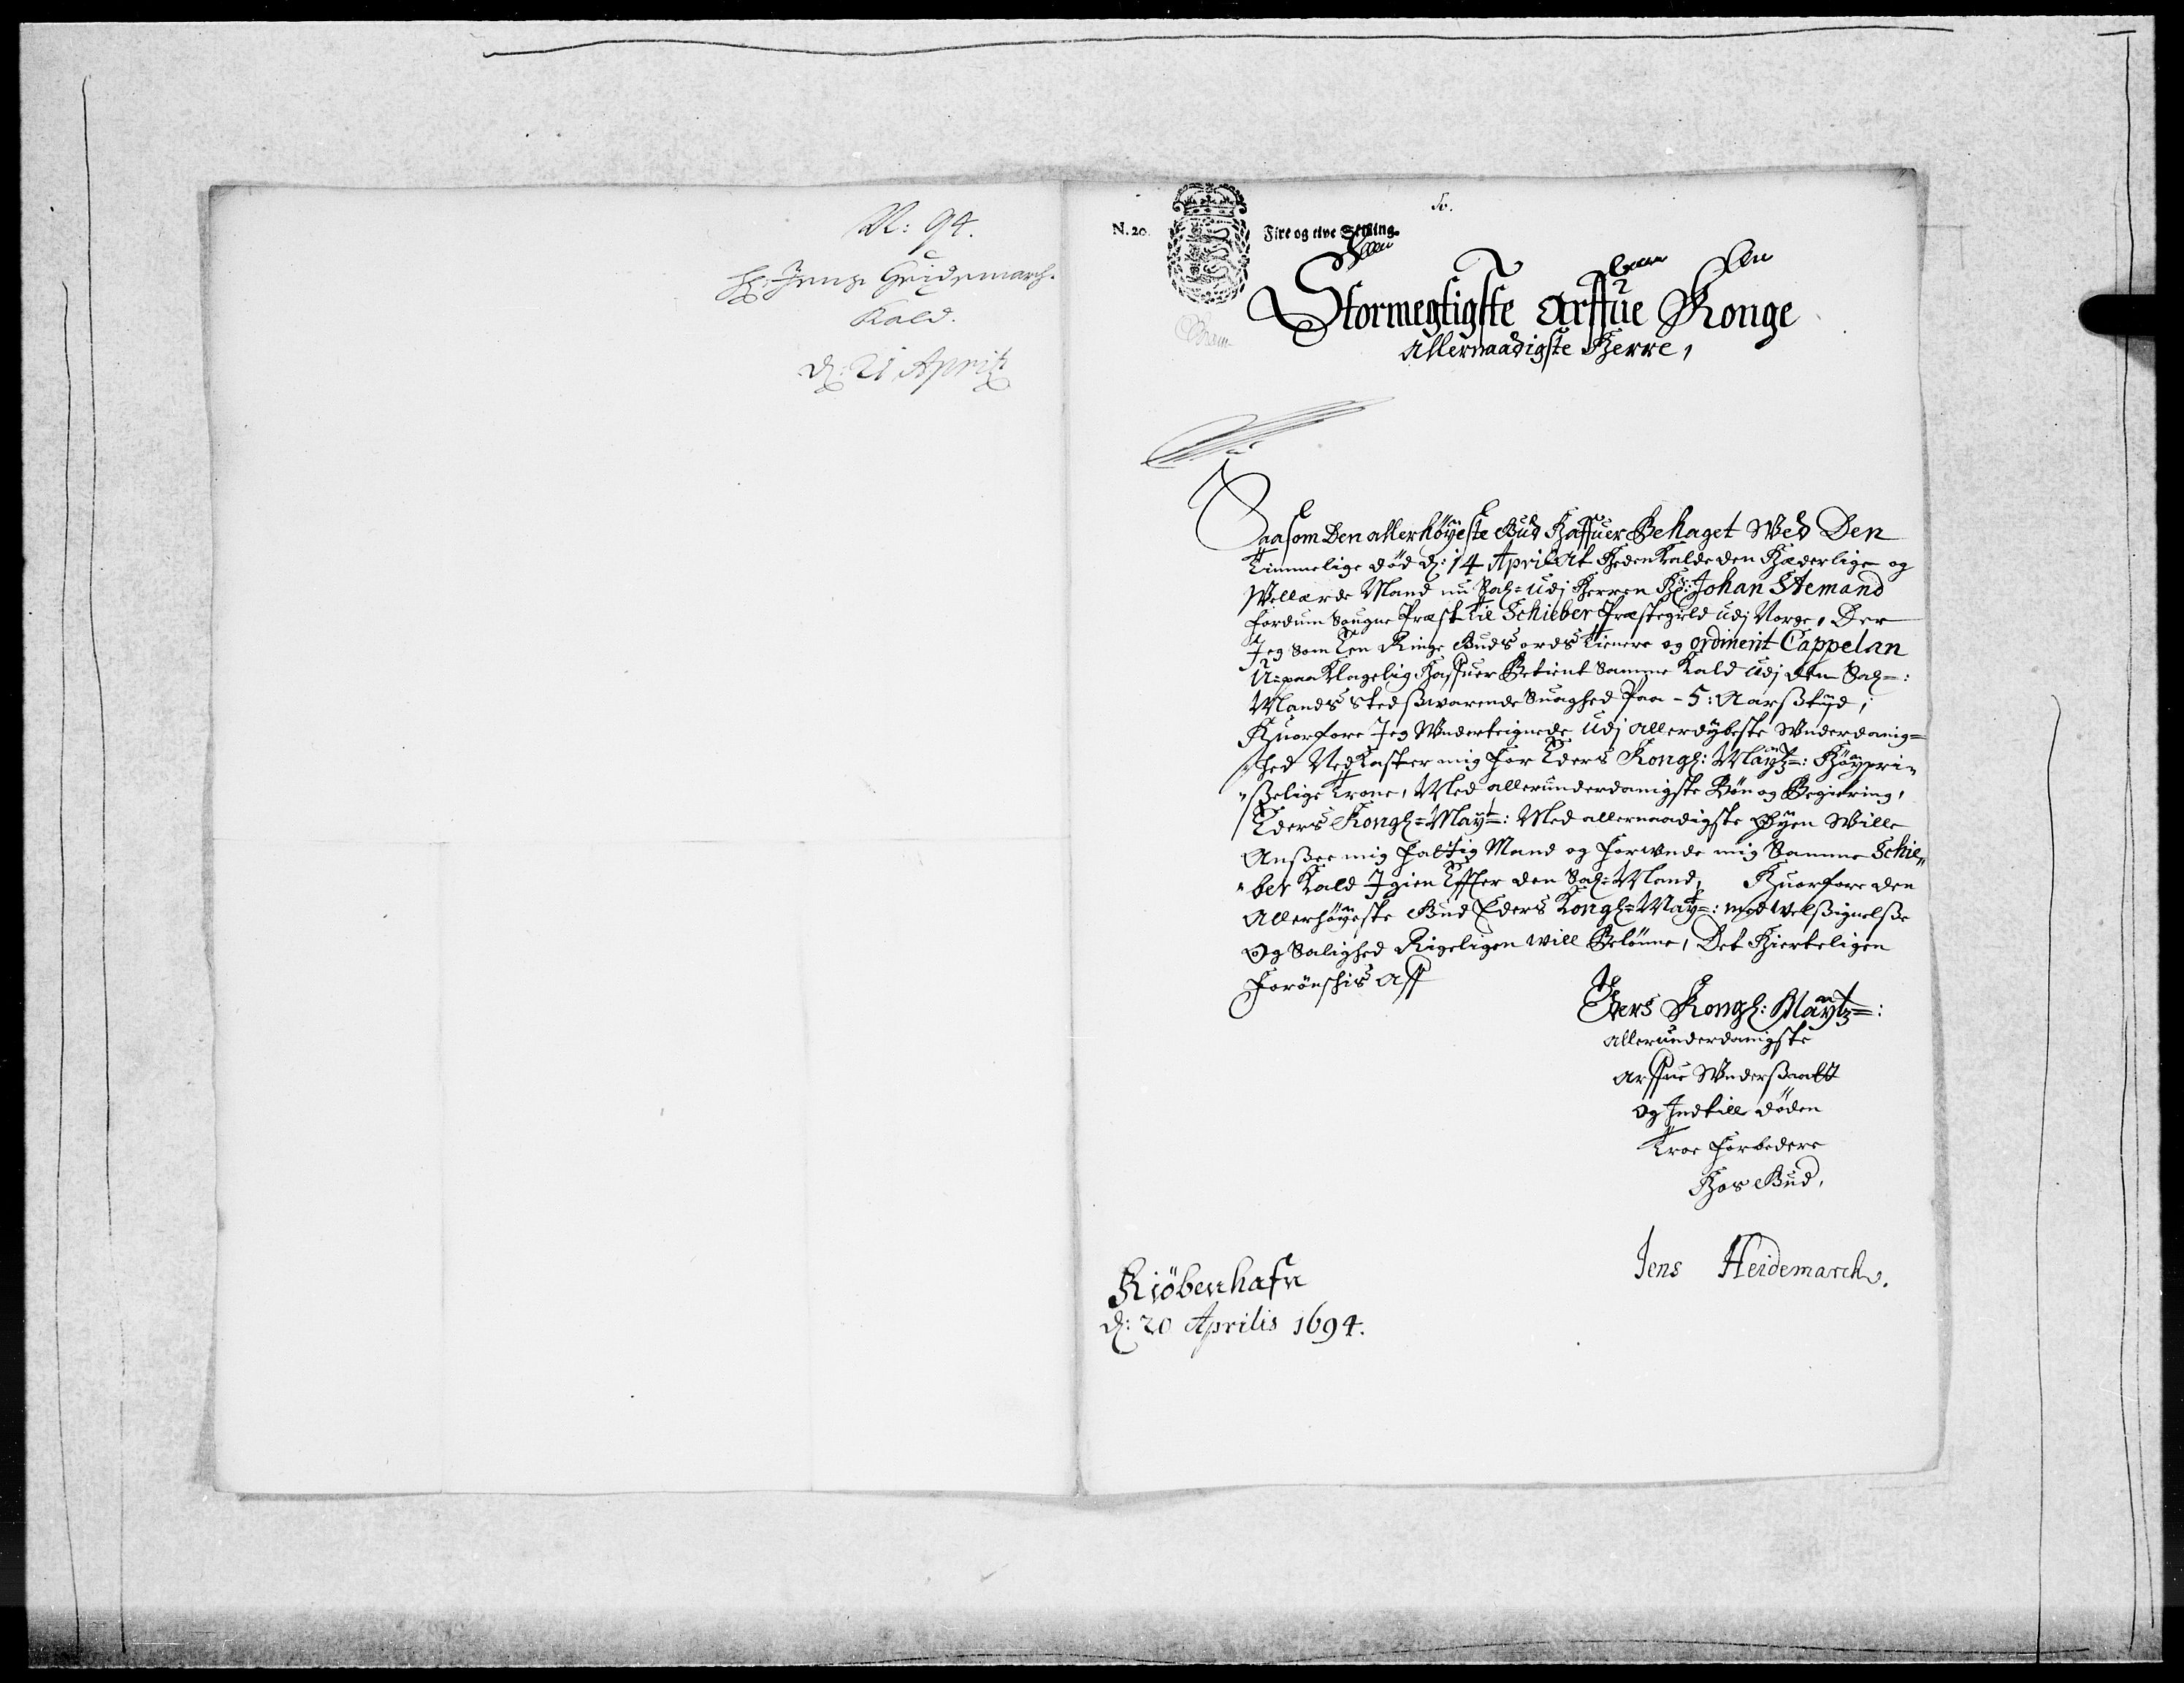 N: 94.
Hr: Jens Heidemarch.
Kald.
d: 21 April:
N. 20.
Fire og tive Skilling
Stormegtigste Arffue Konge
Allernaadigste Herre,
Saasom Den allerhöÿeste Gud Haffuer Behaget Wed Den
Timmelige död d: 14 April At Hedenkalde den Hæderlige og
Wellærde Mand nu Sal= udj Herren Hr: Johan Stemand
fordum Sougne Præst til Schieber Præstegield udj Norge, Der
Jeg som een Ringe Guds ords Tienere og ordinerit Cappelan
U=paaklagelig Haffuer Betient Samme Kald udj den Sal=:
Mands stedsswarende Suaghed Paa - 5: Aarsstiid,
Huorfore Jeg Underteignede udj allerdybeste Underdanig=
=hed Nedkaster mig for Eders Kongl: Maÿtz=: Höÿpri=
=sselige Trone, Med allerunderdanigste Bön og Begiering,
Eders Kongl=Maÿt=: Med allernaadigste Øÿen Wille
Anssee mig fattig Mand og forunde mig Samme Schie„
„ber Kald Igien Effter den Sal= Mand, Huorfore den
Allerhöÿeste Gud Eders Kongl=Maÿt=: med Velssignelsse
Og Salighed Rigeligen will Belönne, Det Hierteligen
Forönschis Aff
Eders Kongl: Maÿtz=:
Allerunderdanigste
Arffue Underssaatt
Og Indtill döden
Troe forbedere
Hos Gud,
Jens Heidemarch.
Kiöbenhafn
d: 20 Aprilis 1694.